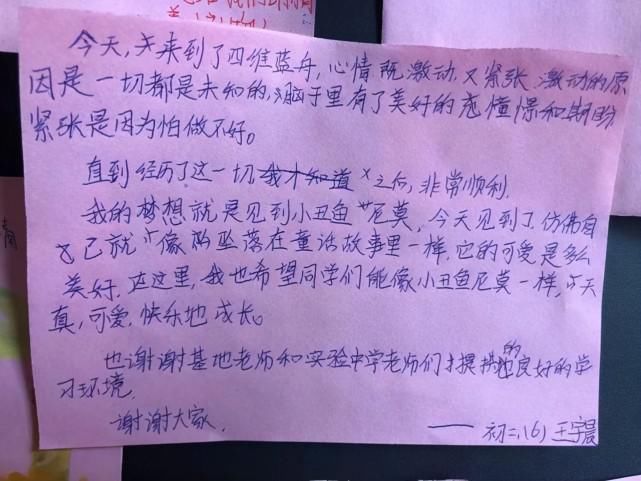 今天,来到了四维蓝舟,心情既激动又紧张,激动的原
因是一切都是未知的,脑子里有了美好的憧憬和期盼
紧张是因为怕做不好。
直到经历了这一切我才知道之后,非常顺利.
我的梦想就是见到小丑鱼尼莫,今天见到了,仿佛自
己就像坠落在童话故事里一样,它的可爱是多么
美好.在这里,我也希望同学们能像小丑鱼尼莫一样,天
真,可爱,快乐地成长。
也谢谢基地老师和实验中学老师们提供的良好的学
习环境.
谢谢大家.
——初二.(6)王宇晨